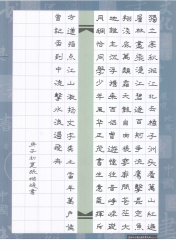 獨立寒秋湘江北去橘子洲頭看萬山紅遍
層林盡染漫江碧透百舸爭流鷹擊長空魚
翔淺底萬類霜天競自由悵寥廓問蒼茫大
地誰主沉浮攜來百侶曾遊憶往昔崢嶸歲
月稠恰同學少年風華正茂書生意氣揮斥
方遒指點江山激揚文字糞土當年萬戶侯
曾記否到中流擊水浪遏飛舟
庚子初夏書